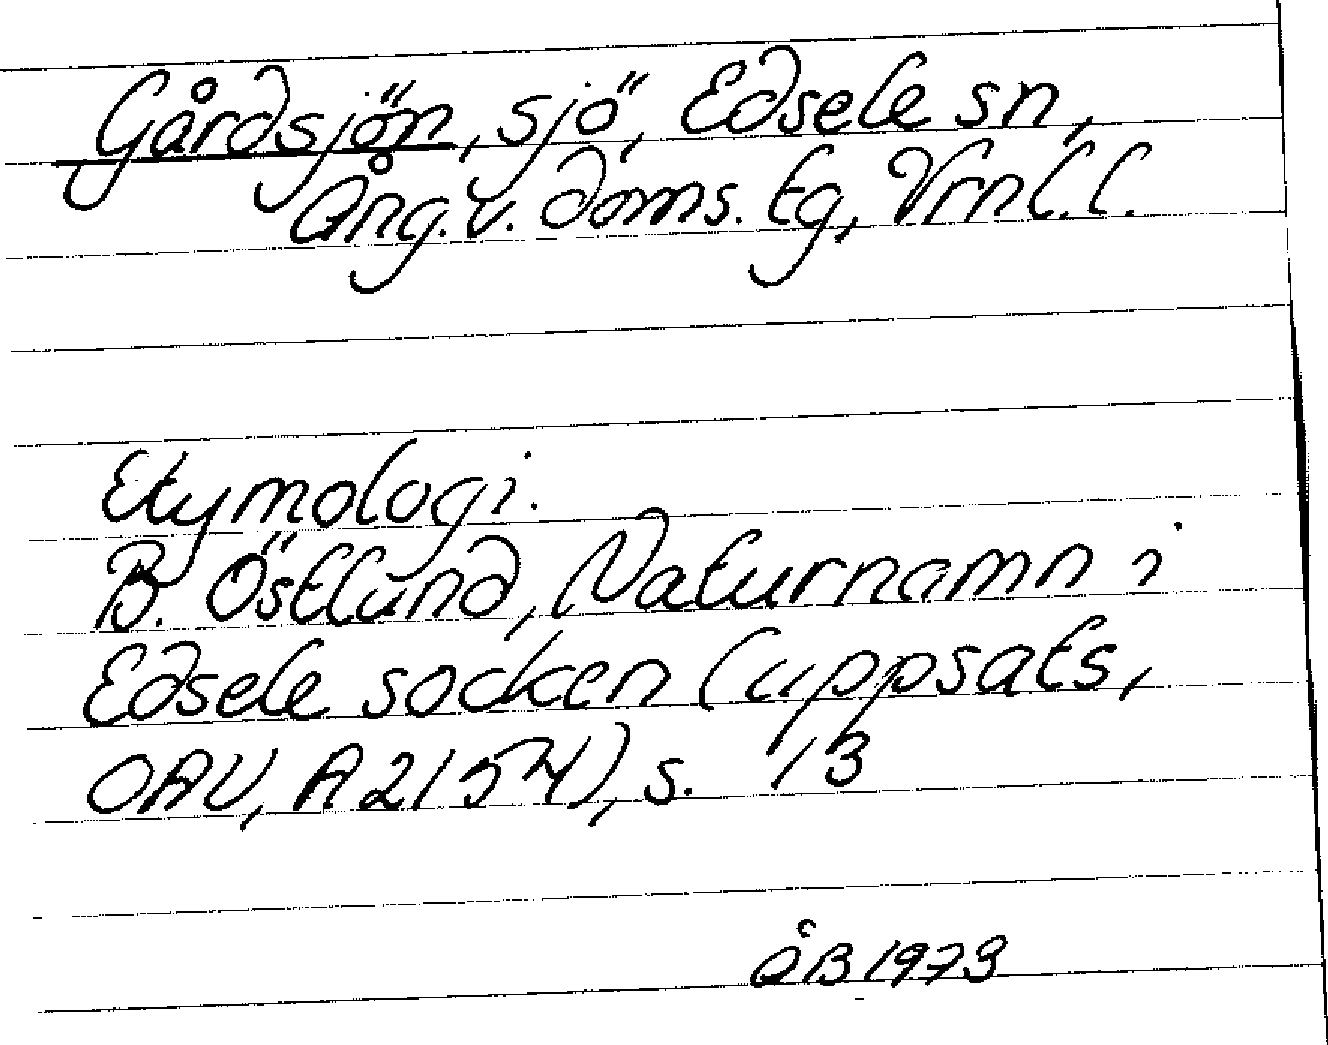 Gårdsjön, sjö, Edsele sn,
Ång.v. doms. tg, Vrnl. l.
Etymologi.
B. Östlund, Naturnamn i
Edsele socken (uppsats,
OAU, A 2154), s. 13
ÅB 1973